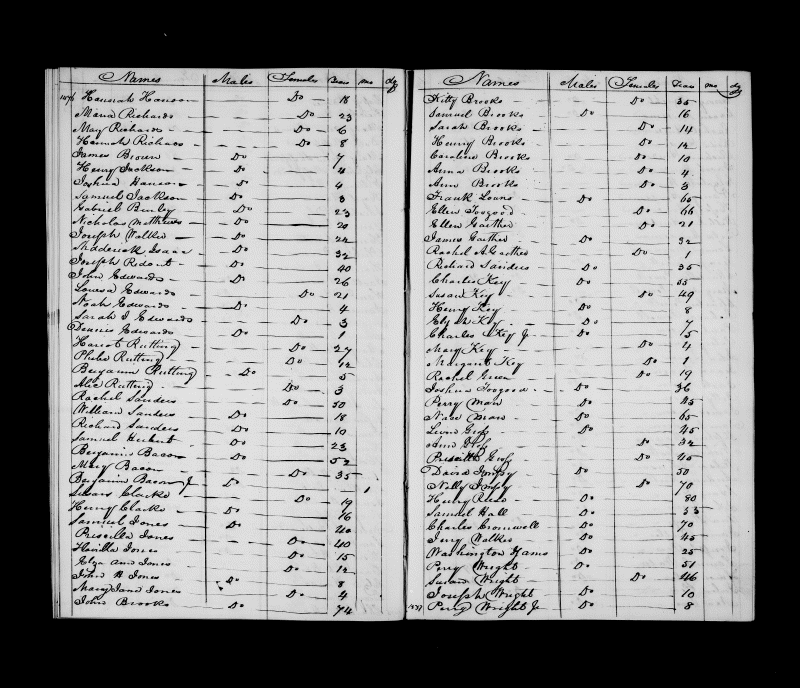 Names Males Females Years mo dy
1476 Hannah Hanson Do 18
Maria Richards Do 23
May Richards Do 6
Hannah Richards Do 8
James Brown Do 7
Henry Jackson Do 4
Joshua Hanson Do 4
Samuel Jackson Do 3
Gabriel Do 23
Nicholas Matthews Do 20
Joseph Walker Do 22
Shaderick Isaac Do 32
Joseph Ridout Do 40
John Edwards Do 26
Louesa Edwards Do 21
Noah Edwards Do 4
Sarah J Edwards Do 3
Dennis Edwards Do 1
Harriot Rutting Do 27
Phebe Rutting Do 12
Benjamin Rutting Do 5
Rutting Do 3
Rachel Sanders Do 50
William Sanders Do 18
Richard Sanders Do 10
Samuel Herbert Do 23
Benjamin Bacon Do 52
Mary Bacon Do 35
Benjamin Bacon Jr Do 1
Susan Clarke Do 19
Henry Clarke Do 16
Samuel Jones Do 40
Priscilla Jones Do 40
Jones Do 15
Elza Ann Jones Do 12
John H Jones Do 8
Mary Jane Jones Do 4
John Brooks Do 74
Names Males Females Years mo dy
Kitty Brooks Do 35
Samuel Brooks Do 16
Sarah Brooks Do 14
Henry Brooks Do 12
Caroline Brooks Do 10
Anna Brooks Do 4
Ann Brooks Do 3
Frank Do 60
Ellen Toogood Do 66
Ellen Gaither Do 21
James Gaither Do 32
Rachel A Gaither Do 1
Richard Sanders Do 35
Charles Key Do 55
Susan Key Do 49
Henry Key Do 8
Key Do 7
Charles Key Jr Do 15
Mary Key Do 4
Margaret Key Do 1
Rachel Green Do 19
Joshua Toogood Do 36
Perry Man Do 45
Man Do 65
Levin Gross Do 45
Ann Gross Do 32
Priscilla Gross Do 45
David Do 50
Nelly Do 70
Henry Do 80
Samuel Hall Do 33
Charles Cromwell Do 70
Jerry Walker Do 45
Washington Hams Do 25
Perry Wright Do 51
Susan Wright Do 46
Joseph Wright Do 10
Perry Wright Jr Do 8